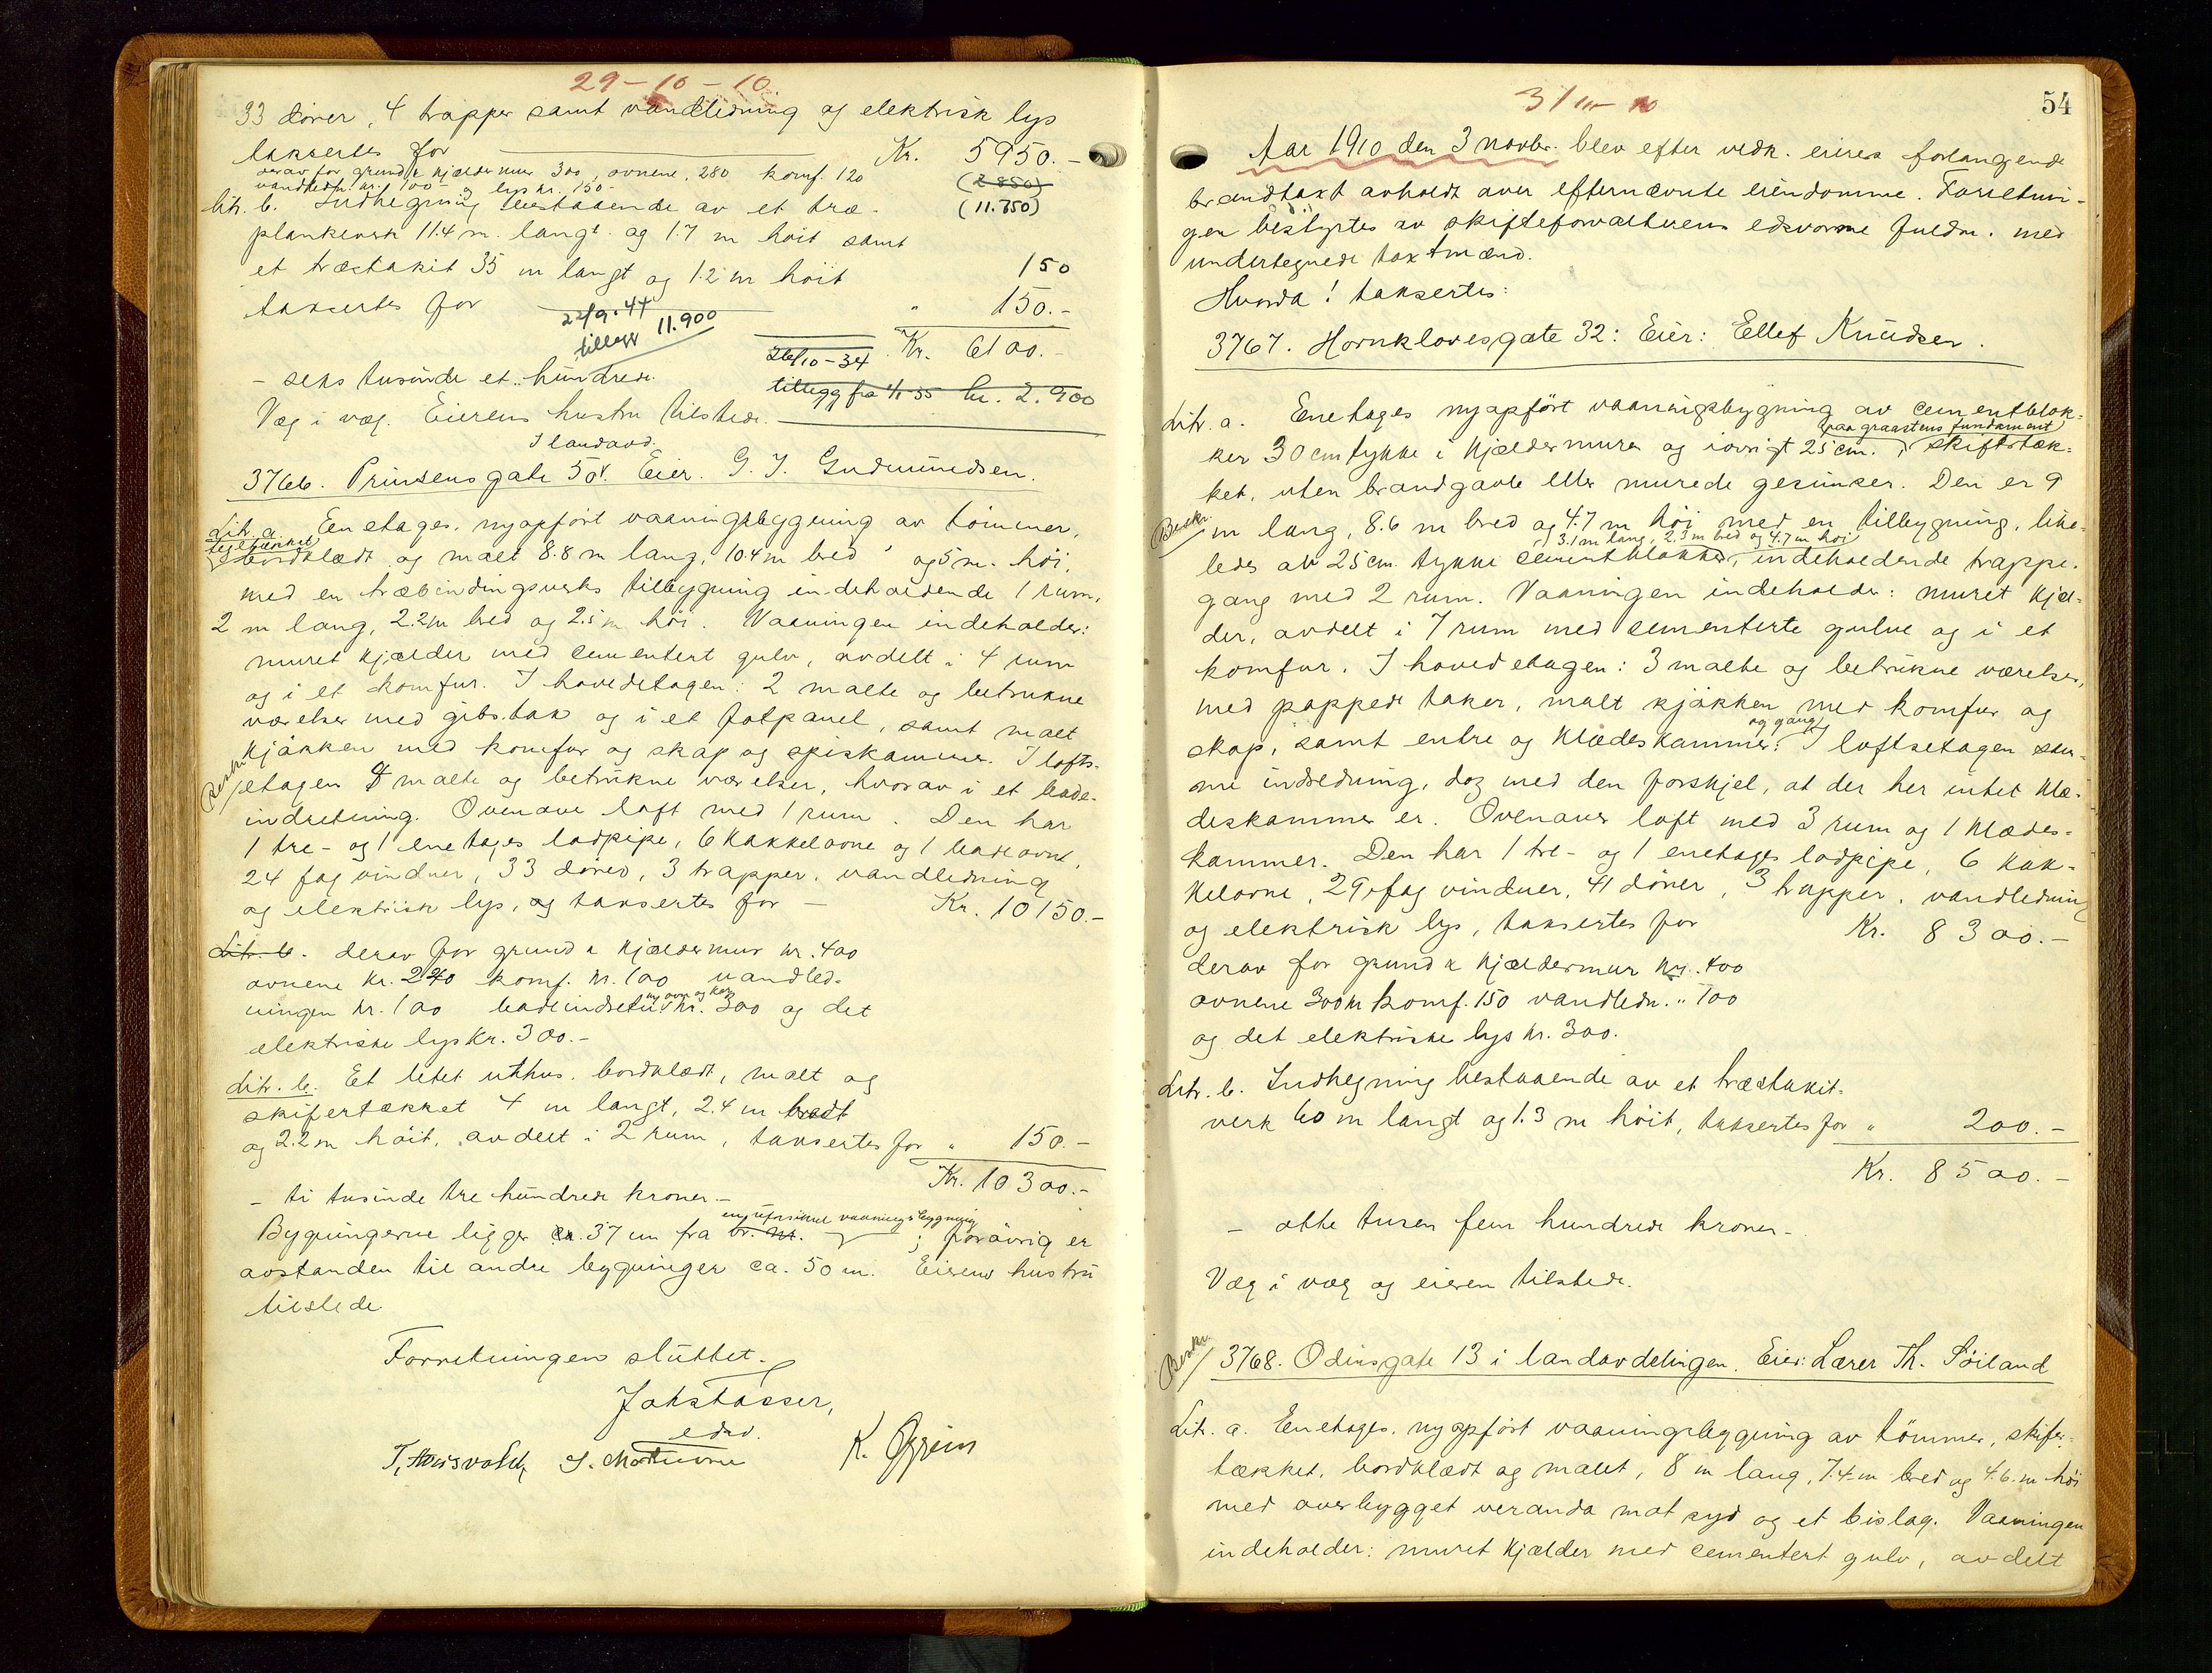 29-10-10.
33 dører, 4 trapper samt vandledning og elektrisk lys
taksertes for Kr. 5950.-
derav for grund & kjældermur 300, ovnene 280 komf. 120 (2850)
vandledn. kr. 100 og lys kr. 150.- (11.750)
Litr. b. Indhegning bestaaende av et træ-
plankeverk 11.4 m. langt og 1.7 m høit samt
et træstakit 35 m langt og 1.2 m høit 150
taksertes for " 150.-
22/9.44
tillegg 11.900
Kr. 6100.-
26/10-34
- seks tusinde et hundrede.
tillegg fra 1/1-35 kr. 2.900
Væg i væg. Eierens hustru tilstede.
I landavd.
3766. Prinsensgate 50 Eier. G. J. Gudmundsen.
Lit. a Een etages, nyopført vaaningsbygning av tømmer,
teglstækket
bordklædt og malt 8.8 m lang, 10.4 m bred og 5 m. høi,
med en træbindingsverks tilbygning indeholdende 1 rum,
2 m lang, 2.2 m bred og 2.5 m høi. Vaaningen indeholder:
muret kjælder med cementert gulv, avdelt i 4 rum
og i et komfur. I hovedetagen: 2 malte og betrukne
værelser med gibs.tak og i et fotpanel, samt malt
kjøkken med komfur og skap og spiskammer. I lofts-
Beskr.
etagen 4 malte og betrukne værelser, hvorav i et bade-
indretning. Ovenover loft med 1 rum. Den har
1 tre- og 1 enetages lodpipe, 6 kakkelovne og 1 badeovn,
24 fag vinduer, 33 dører, 3 trapper, vandledning
og elektrisk lys, og taksertes for - Kr. 10150.-
Litr. b. derav for grund & kjældermur kr. 400
ovnene kr. 240 komf. kr. 100 vandled-
ny ovn og kar
ningen kr. 100 badeindretn. kr. 300 og det
elektriske lys kr. 300.-
Litr. b. Et litet uthus, bordklædt, malt og
skifertækket 4 m langt, 2.4 m bredt
og 2.2 m høit, avdelt i 2 rum, taksertes for " 150.-
Kr. 10300.-
- ti tusinde tre hundrede kroner.-
vaaningsbygning
Bygningerne ligger ca. 37 m fra br. nr. ; forøvrig er
avstanden til andre bygninger ca. 50 m. Eierens hustru
tilstede
Forretningen sluttet.
edsv.
54
Aar 1910 den 3 novbr. blev efter vedk. eieres forlangende
brandtaxt avholdt over efternævnte eiendomme. Forretnin-
gen bestyrtes av skifteforvalterens edsvorne fuldm. med
undertegnede taxtmænd.
Hvorda! taksertes:
3767. Hornklovesgate 32: Eier: Ellef Knudsen.
Litr. a. Enetages nyopført vaaningsbygning av cementblok-
paa graastens fundament
ker 30 cm tykke i kjældermuren og iøvrigt 25 cm., skifertæk-
ket, uten brandgavle eller murede gesimser. Den er 9
Beskr.
m lang, 8.6 m bred og 4.7 m høi med en tilbygning, like-
3.1 m lang, 2.3 m bred og 4.7 m høi
ledes av 25 cm. tykke cementblokker, indeholdende trappe-
gang med 2 rum. Vaaningen indeholder: muret kjæl-
der, avdelt i 7 rum med cementerte gulve og i et
komfur. I hovedetagen: 3 malte og betrukne værelser,
med pappede taker, malt kjøkken med komfur og
og gang
skap, samt entre og klædeskammer. I loftsetagen sam-
me indredning, dog med den forskjel, at der her intet klæ-
deskammer er. Ovenover loft med 3 rum og 1 klædes-
kammer. Den har 1 tre- og 1 enetages lodpipe, 6 kak-
kelovne, 29 fag vinduer, 41 dører, 3 trapper, vandledning
og elektrisk lys, taksertes for Kr. 8300.-
derav for grund & kjældermur kr. 400
ovnene 300 kr komf. 150 vandledn. " 100
og det elektriske lys kr. 300.
Litr. b. Indhegning bestaaende av et træstakit-
verk 60 m langt og 1.3 m høit, taksertes for " 200.-
Kr. 8500.-
- otte tusen fem hundrede kroner -
Væg i væg og eieren tilstede.
Beskr.
3768. Odinsgate 13 i landavdelingen. Eier: Lærer Th. Søiland
Lit. a. Enetages, nyopført vaaningsbygning av tømmer, skifer-
tækket, bordklædt og malet, 8 m lang, 7.4 m bred og 4.6 m høi
med overbygget veranda mot syd og et bislag. Vaaningen
indeholder: muret kjælder med cementert gulv, avdelt